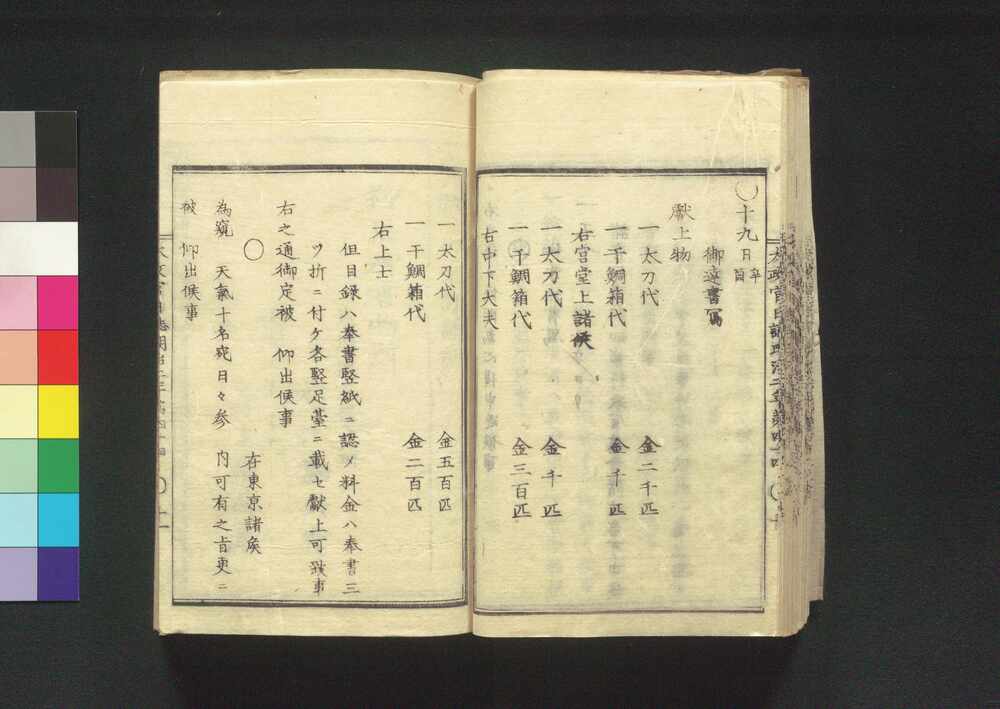 〇十九日 辛酉
御達書寫
獻上物
一太刀代 金二千匹
一干鯛箱代 金千匹
右宮堂上諸侯
一太刀代 金千匹
一干鯛箱代 金三百匹
右中下大夫
一太刀代 金五百匹
一干鯛箱代 金二百匹
右上士
但目録ハ奉書竪紙ニ認メ料金ハ奉書三
ツ折ニ付ケ各竪足臺ニ載セ獻上可致事
右之通御定被 仰出候事
〇
在東京諸侯
為窺 天氣十名宛日々參 内可有之旨更ニ
被 仰出候事